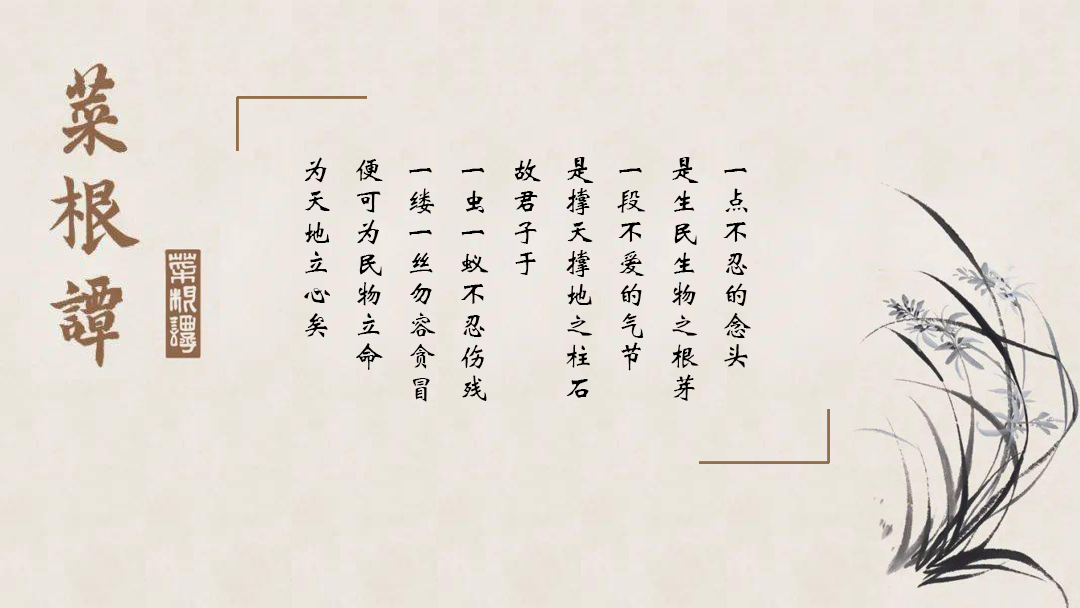 菜根譚
菜根譚
一点不忍的念头
是生民生物之根芽
一段不爱的气节
是撑天撑地之柱石
故君子于
一虫一蚁不忍伤残
一缕一丝勿容贪冒
便可为民物立命
为天地立心矣